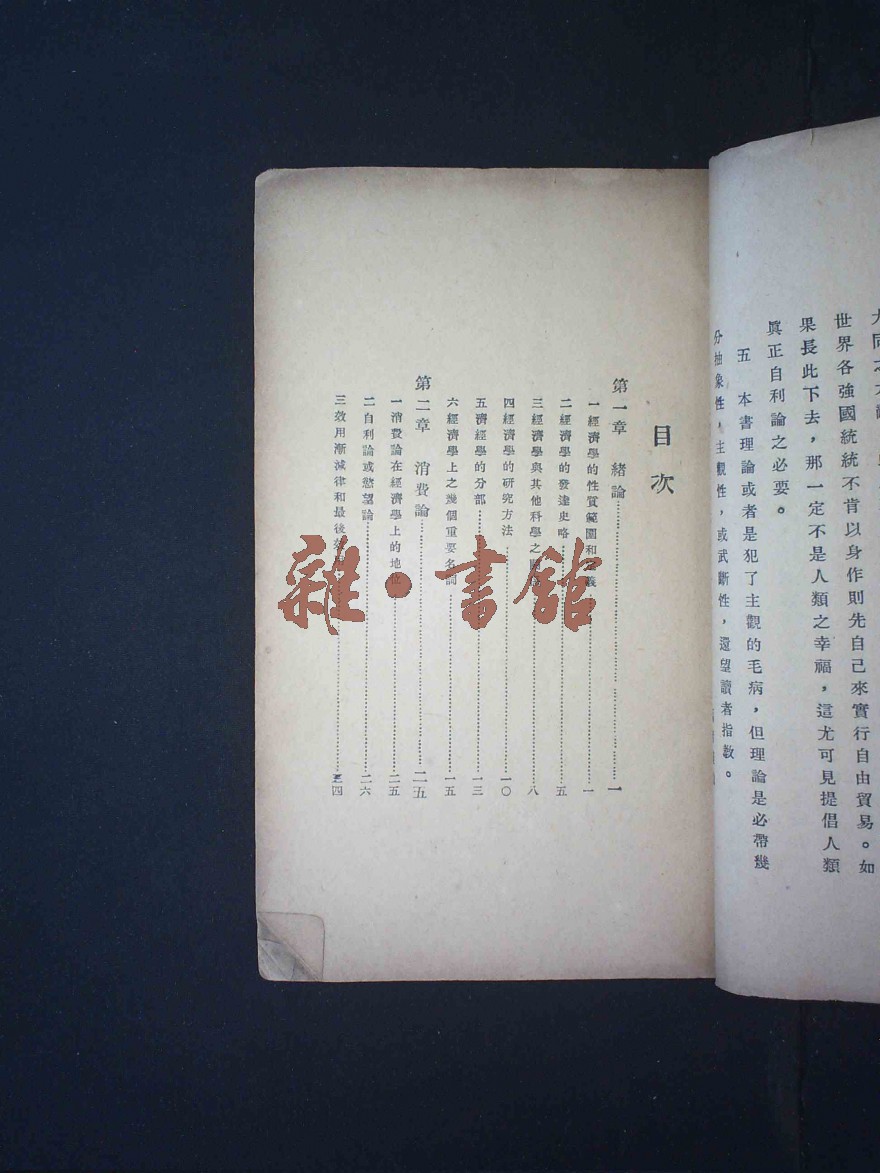 世界各強國統統不肯以身作則先自己來實行自由貿易。如
果長此下去，那一定不是人類之幸福，這尤可見提倡人類
眞正自利論之必要。
五　本書理論或者是犯了主觀的毛病，但理論是必帶幾
分抽象性，主觀性，或武斷性，還望讀者指敎。
目次
第一章　緒論……一
一經濟學的性質範圍和……一
二經濟學的發達史略……五
三經濟學與其他科學之……八
四經濟學的研究方法……一〇
五濟經學的分部……一三
六經濟學上之幾個重要名詞……一五
第二章　消費論……二五
一消費論在經濟學上的地位……二五
二自利論或慾望論……二六
三效用漸減律和最後……四
雜·書館